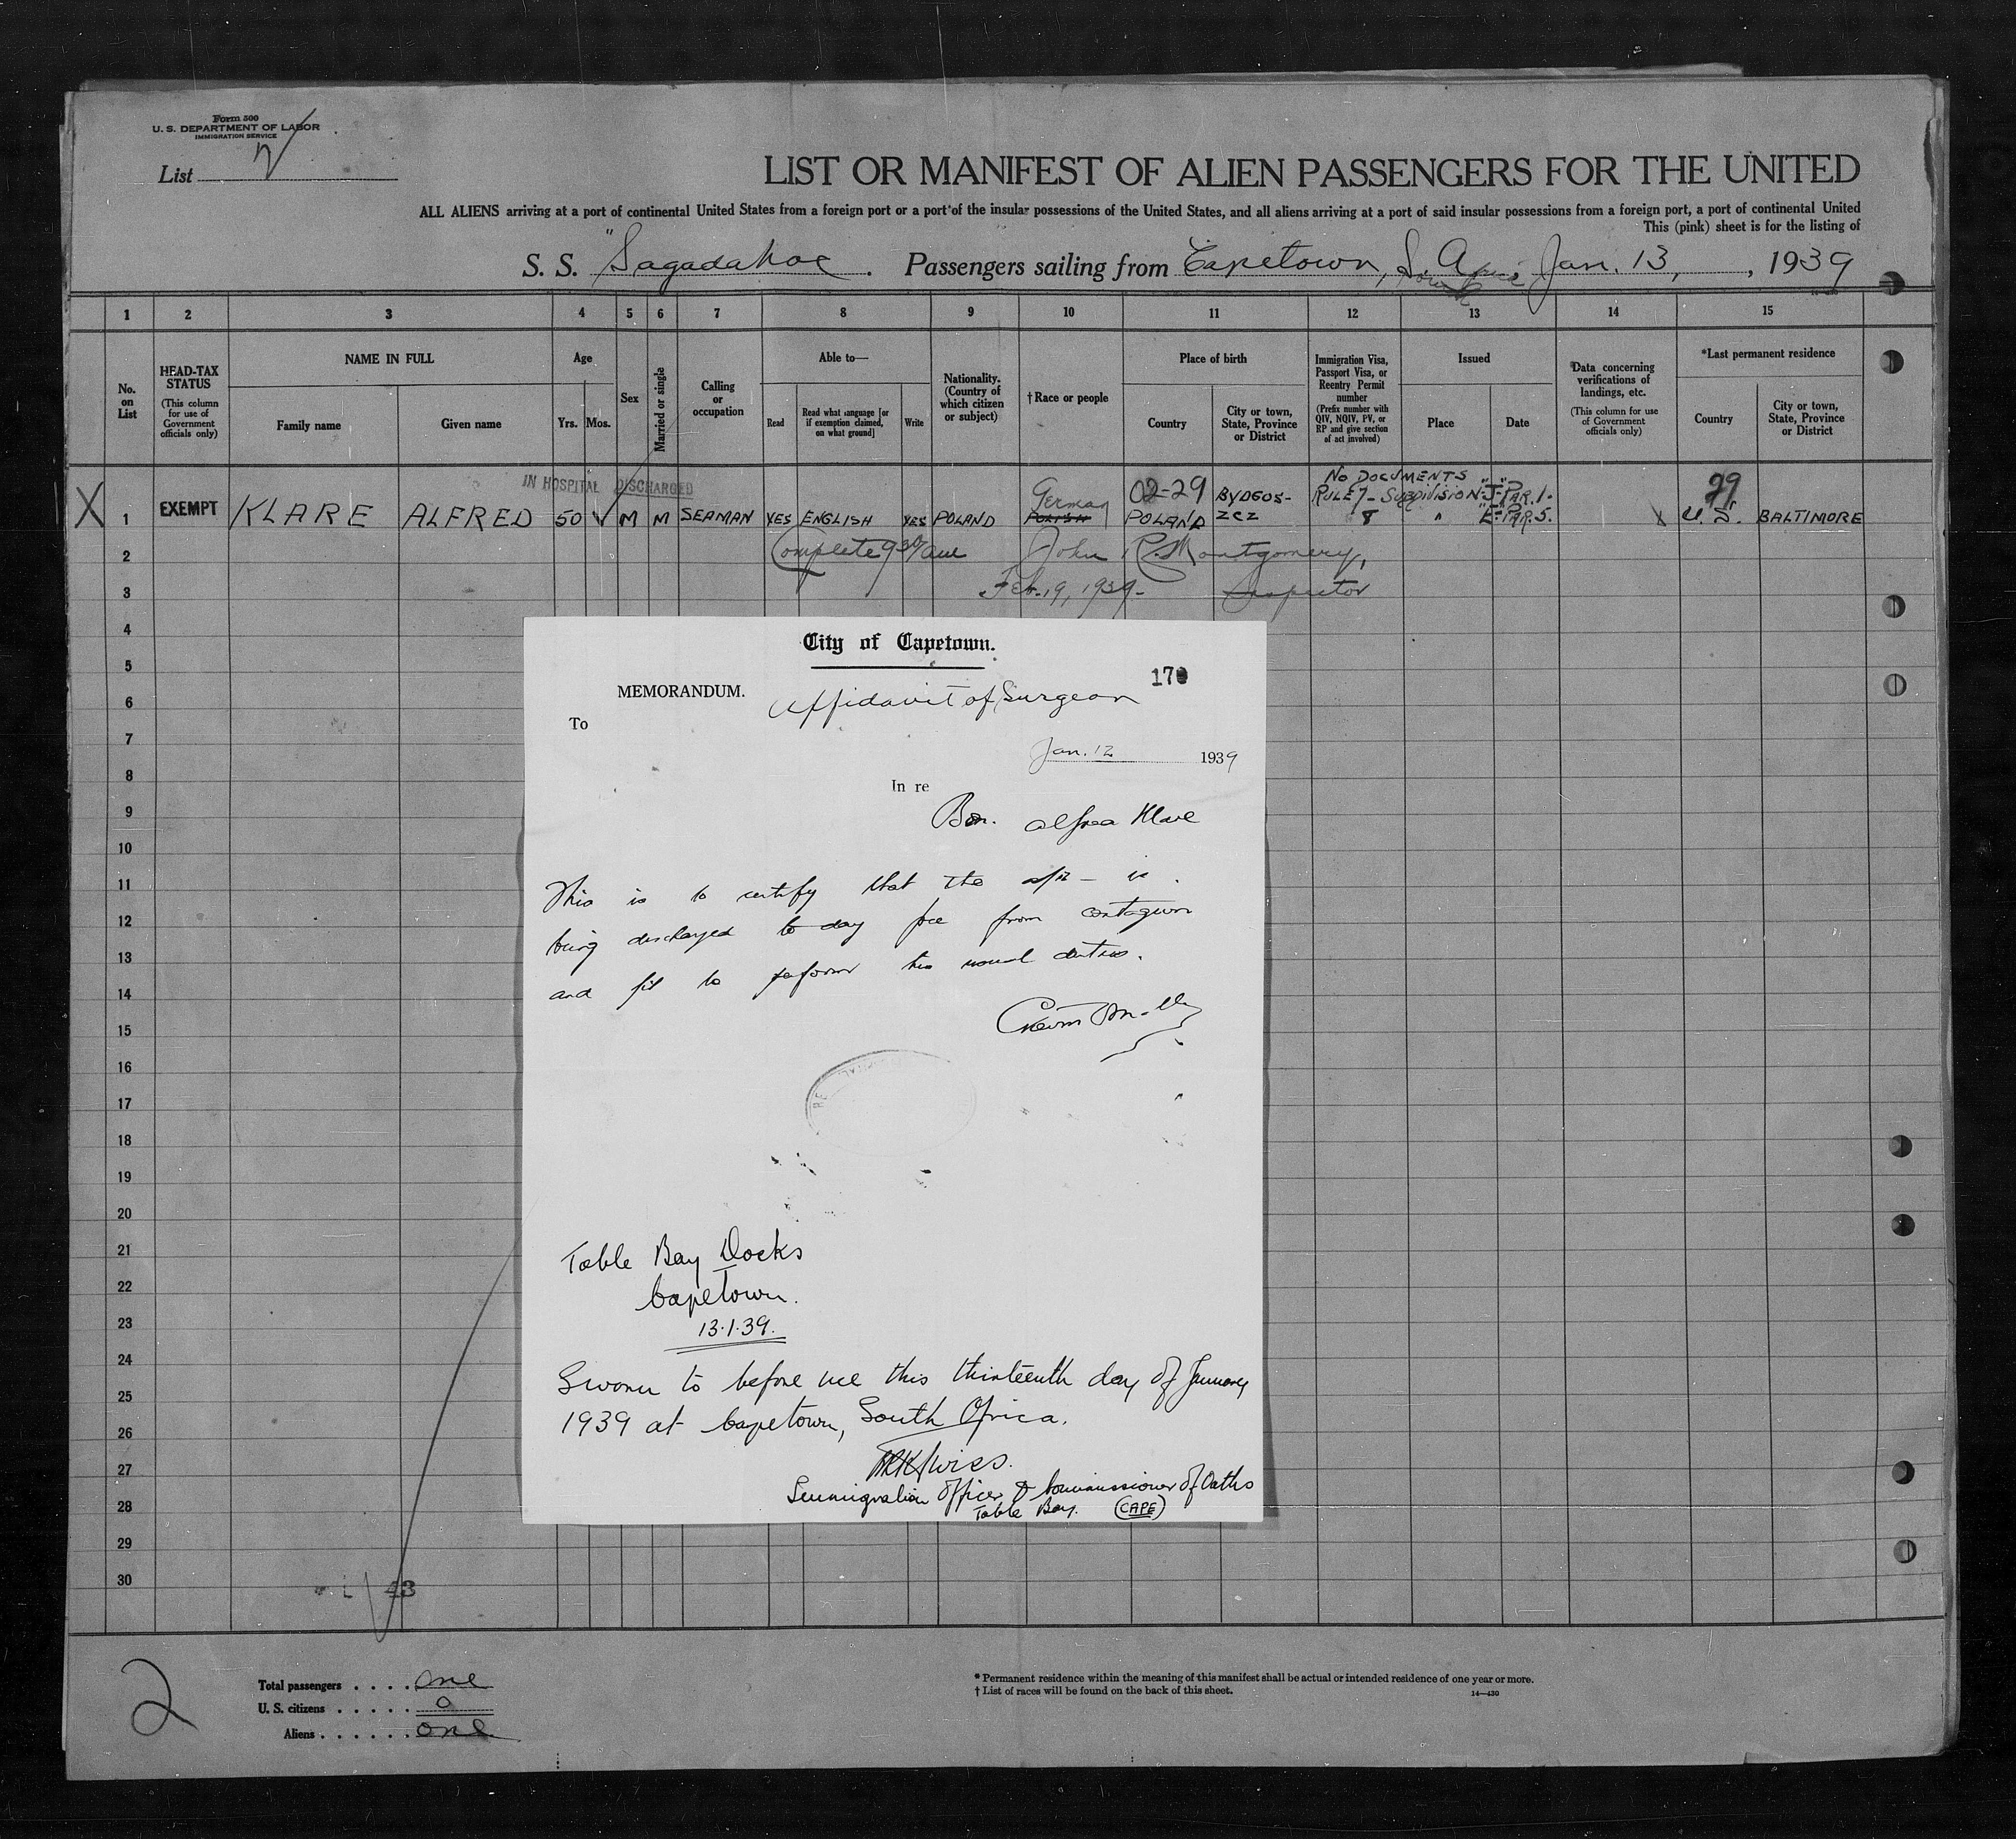 Form 500
U. S. DEPARTMENT OF LABOR
IMMIGRATION SERVICE
List 2
LIST OR MANIFEST OF ALIEN PASSENGERS FOR THE UNITED
ALL ALIENS arriving at a port of continental United States from a foreign port or a port of the insular possessions of the United States, and all aliens arriving at a port of said insular possessions from a foreign port, a port of continental United
This (pink) sheet is for the listing of
S. S. "Sagadahoc . Passengers sailing from Capetown, S. Jan. 13, , 1939
1 2 3 4 5 6 7 8 9 10 11 12 13 14 15
No. on List
HEAD-TAX STATUS
(This column for use of Government officials only)
NAME IN FULL
Family name
Given name
Age
Yrs. Mos.
Sex
Married or single
Calling or occupation
Able to—
Read
Read what language [or if exemption claimed, on what ground]
Write
Nationality. (Country of which citizen or subject)
†Race or people
Place of birth
Country
City or town, State, Province or District
Immigration Visa, Passport Visa, or Reentry Permit number
(Prefix number with QIV, NQIV, PV, or RP and give section of act involved)
Issued
Place
Date
*Data concerning verifications of landings, etc.
(This column for use of Government officials only)
*Last permanent residence
Country
City or town, State, Province or District
IN HOSPITAL DISCHARGED
German 02-29 NO DOCUMENTS 29
X 1 EXEMPT KLARE ALFRED 50 M M SEAMAN YES ENGLISH YES POLAND POLISH POLAND BYDGOS- ZCZ RULE 7 - SUBDIVISION "J" PAR. 1. U. S. BALTIMORE
8 " "E" PAR. 5.
2 Complete 9 30/am John R. Montgomery,
3 Feb. 19, 1939. Inspector
4
5
6
7
8
9
10
11
12
13
14
15
16
17
18
19
20
21
22
23
24
25
26
27
28
29
30
City of Capetown.
170
MEMORANDUM. Affidavit of Surgeon
To
Jan. 12 1939
In re
Alfred Klare
This is to certify that the is
being discharged to-day free from contagion
and fit to perform his usual duties.
Table Bay Docks
Capetown.
13.1.39.
Sworn to before me this thirteenth day of January
1939 at Capetown, South Africa.
Immigration Officer & Commissioner of Oaths
Table Bay. (CAPE)
43
2
Total passengers . . . . one
U. S. citizens . . . . . 0
Aliens . . . . . . one
* Permanent residence within the meaning of this manifest shall be actual or intended residence of one year or more.
† List of races will be found on the back of this sheet.
14—430